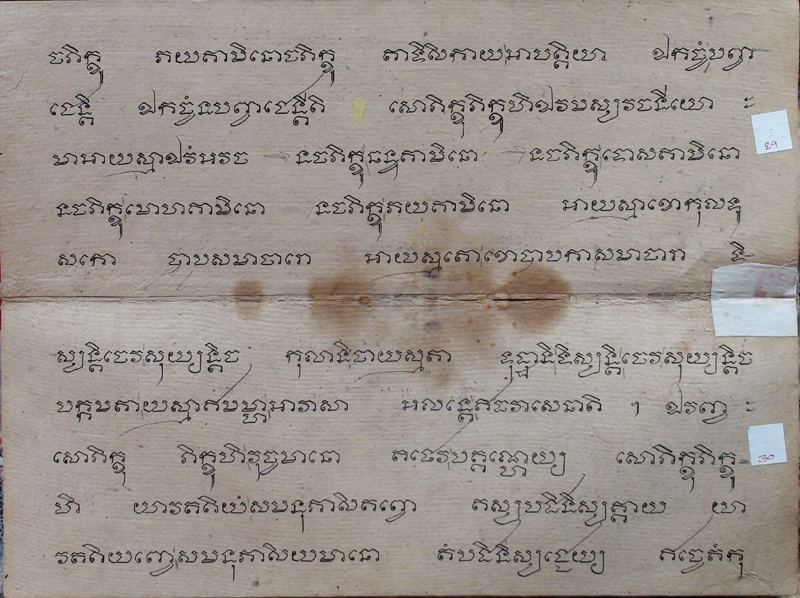 ចភិក្ខូ ភយគាមិនោចភិក្ខូ តាទិសិកាយអាបត្តិយា ឯកច្ចំបព្វា
ជេន្តិ ឯកច្ចំនបព្វាជេន្តីតិ សោភិក្ខុភិក្ខូហិឯវមស្សវចនីយោ ៈ
មាអាយស្មាឯវំអវច នចភិក្ខូឆន្ទគាមិនោ នចភិក្ខូទោសគាមិនោ
នចភិក្ខូមោហគាមិនោ នចភិក្ខូភយគាមិនោ អាយស្មាខោកុលទូ
សកោ បាបសមាចារោ អាយស្មតោខោបាបកាសមាចារា ទិ
ស្សន្តិចេវសុយ្យន្តិច កុលានិចាយស្មតា ទុដ្ឋានិទិស្សន្តិចេវសុយ្យន្តិច
បក្កមតាយស្មាឥមម្ហាអាវាសា អលន្តេឥធវាសេនាតិ ។ ឯវញ្ច ៈ
សោភិក្ខុ ភិក្ខូហិវុច្ចមានោ តថេវបគ្គណ្ហេយ្យ សោភិក្ខុភិក្ខូ
ហិ យាវតតិយំសមនុភាសិតព្វោ តស្សបដិនិស្សគ្គាយ យា
វតតិយញ្ចេសមនុភាសិយមានោ តំបដិនិស្សជ្ជេយ្យ ឥច្ចេតំកុ
29
30